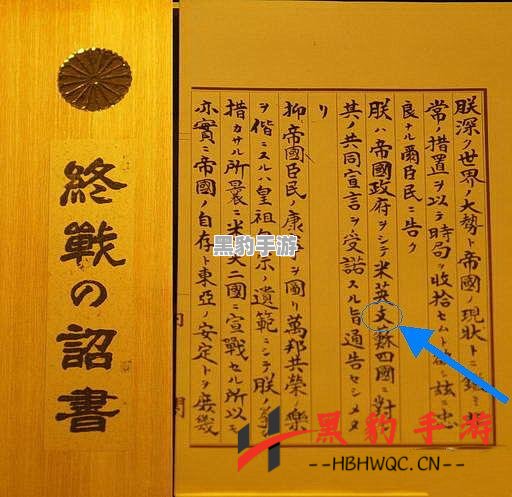 朕深ク世界ノ大勢ト帝國ノ現狀トニ鑑ミ非
常ノ措置ヲ以テ時局ヲ收拾セムト欲シ茲ニ忠
良ナル爾臣民ニ告ク
朕ハ帝國政府ヲシテ米英支蘇四國ニ對
其ノ共同宣言ヲ受諾スル旨通告セシメタ
リ
抑帝國臣民ノ康ヲ圖リ萬邦共榮ノ樂
ヲ偕ニスルハ皇祖ノ遺範ニシテ朕ノ
措カサル所曩ニ米英二國ニ宣戰セル所以モ
亦實ニ帝國ノ自存ト東亞ノ安定トヲ庶幾
終戰の詔書
黑豹手游
黑豹手游
--HBHWQC.CN--